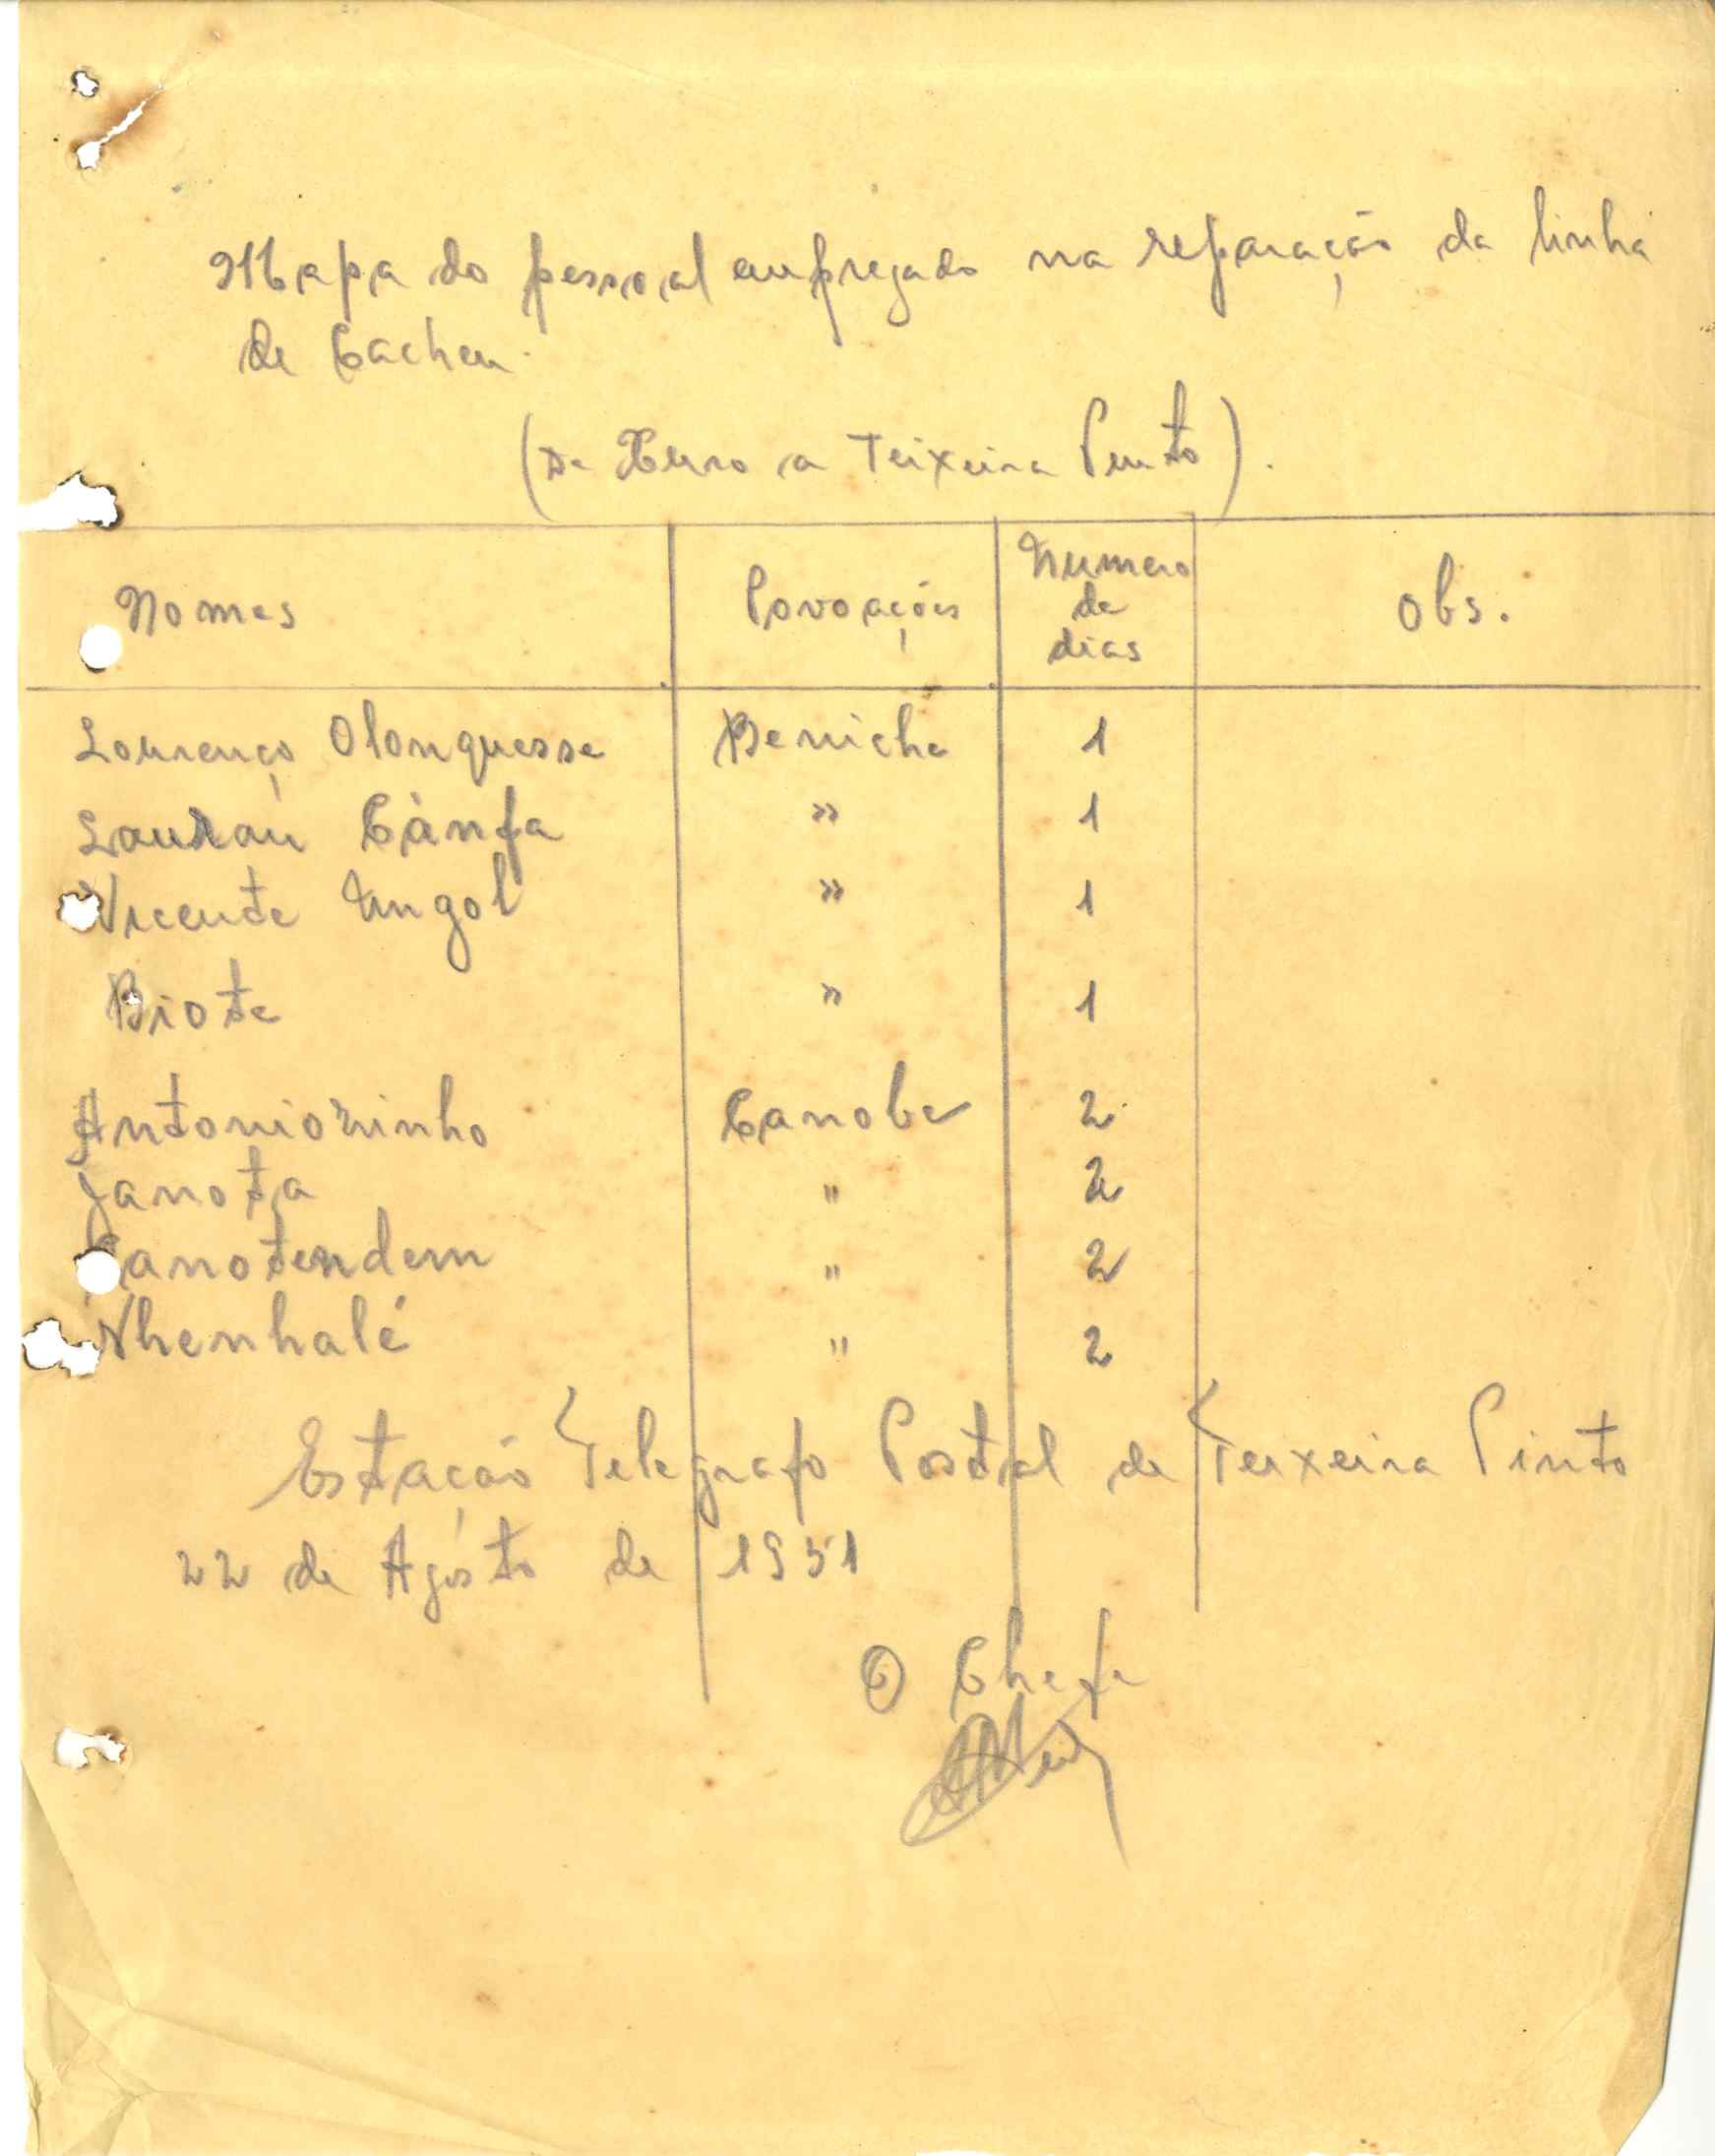 Mapa do pessoal empregado na reparação da linha
de Cacheu.
(De Xurro a Teixeira Pinto).
Nomes Povoações Numero de dias Obs.
Lourenço Olonquesse Beniche 1
Cànfa » 1
Vicente Ungol » 1
Biote » 1
Antoniozinho Canobe 2
Janota " 2
Canotendem " 2
Nhenhalé " 2
Estação Telegrafo Postal de Teixeira Pinto
22 de Agôsto de 1951
O Chefe